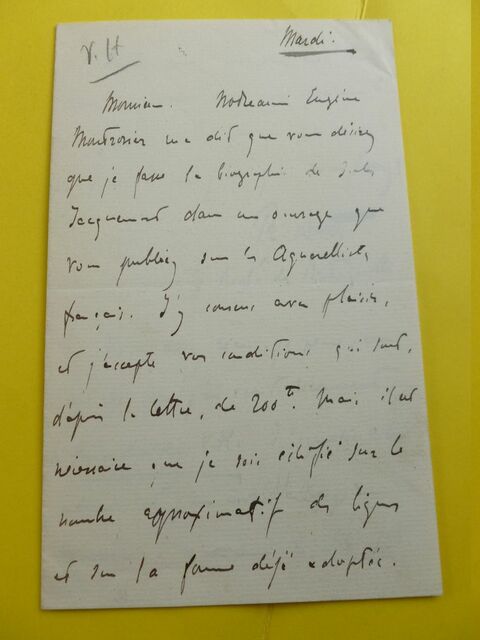 V. H
Mardi.
Monsieur. Notre ami Eugène
Montrosier m'a dit que vous désirez
que je fasse la biographie de Jules
Jacquemart dans un ouvrage que
vous publiez sur les Aquarellistes
français. J'y consens avec plaisir,
et j'accepte vos conditions qui sont,
d'après la lettre, de 200 f. Mais il est
nécessaire que je sois édifié sur le
nombre approximatif des lignes
et sur la forme déjà adoptée.